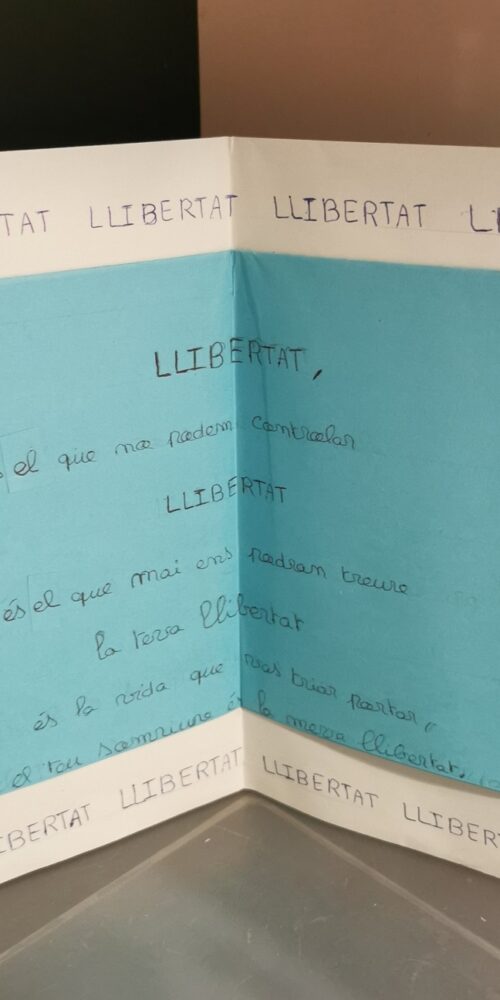 TAT LLIBERTAT LLIBERTAT LI
LLIBERTAT,
el que no podem controlar
LLIBERTAT
és el que mai ens podran treure
la teva llibertat
és la vida que vas triar portar,
el teu somriure és la meva llibertat.
IBERTAT LLIBERTAT LLIBERTAT LLIBERT